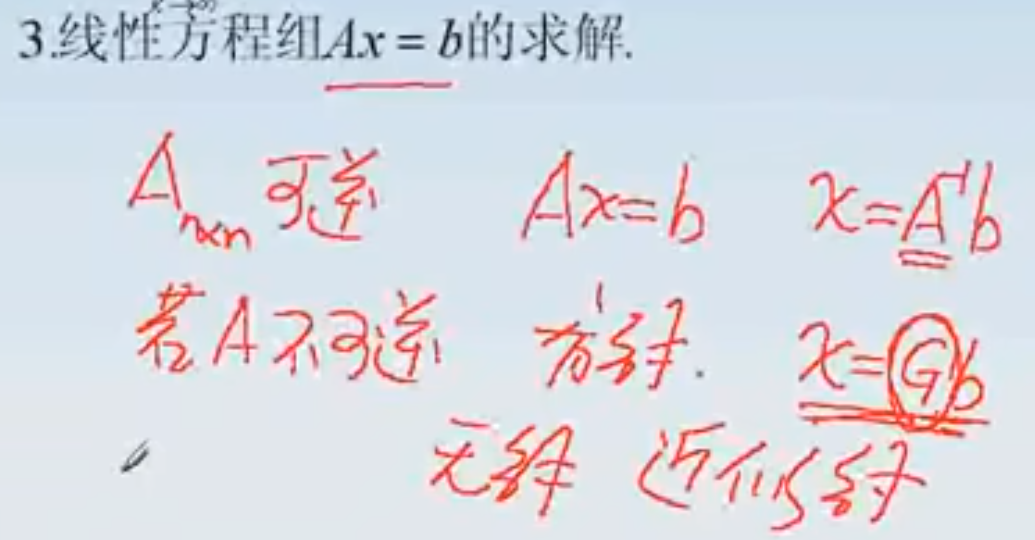 3.线性方程组Ax = b的求解.
Aₙₓₙ 可逆 Ax=b x=A⁻¹b
若A不可逆 有解. x=Gb
无解 近似解